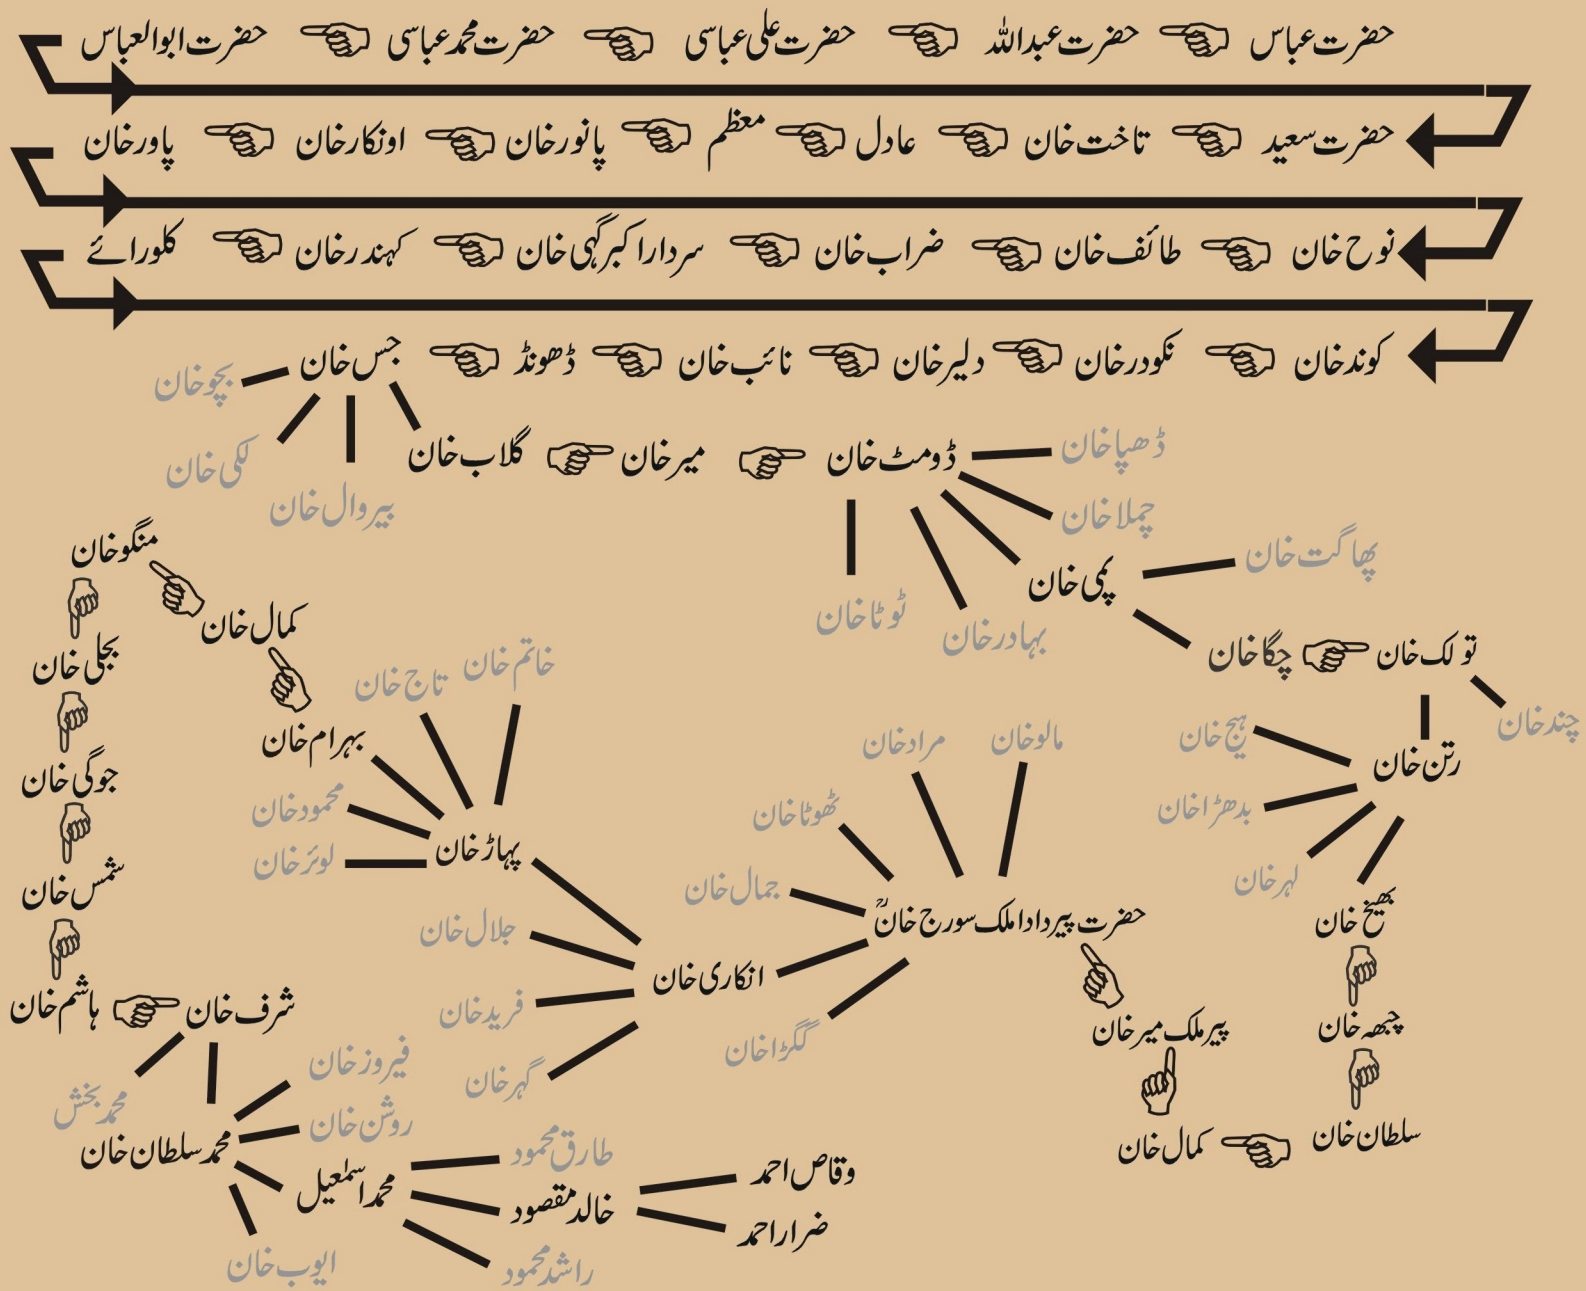 حضرت عباس حضرت عبداللہ حضرت علی عباسی حضرت محمد عباسی حضرت ابوالعباس
حضرت سعید تاخت خان عادل معظم پانور خان اونکار خان پاور خان
نوح خان طائف خان ضراب خان سردار اکبر گہی خان کہندر خان کلورائے
کوند خان نکودر خان دلیر خان نائب خان ڈھونڈ جس خان
بچو خان
لکی خان
بیروال خان
گلاب خان میر خان ڈومٹ خان
ڈھپا خان
چملا خان
پمی خان
بہادر خان
ٹوٹا خان
پھاگت خان
چگا خان تولک خان
چند خان
رتن خان
ہیج خان
بدھڑا خان
لہر خان
بھیخ خان
چبھہ خان
سلطان خان
کمال خان
پیر ملک میر خان
حضرت پیر دادا ملک سورج خانؒ
مالو خان
مراد خان
ٹھوٹا خان
جمال خان
گکڑا خان
انکاری خان
جلال خان
فرید خان
گہر خان
پہاڑ خان
خاتم خان
تاج خان
محمود خان
لوئر خان
بہرام خان
کمال خان
منگو خان
بجلی خان
جوگی خان
شمس خان
ہاشم خان شرف خان
محمد بخش
محمد سلطان خان
فیروز خان
روشن خان
محمد اسمٰعیل
ایوب خان
طارق محمود
خالد مقصود
راشد محمود
وقاص احمد
ضرار احمد